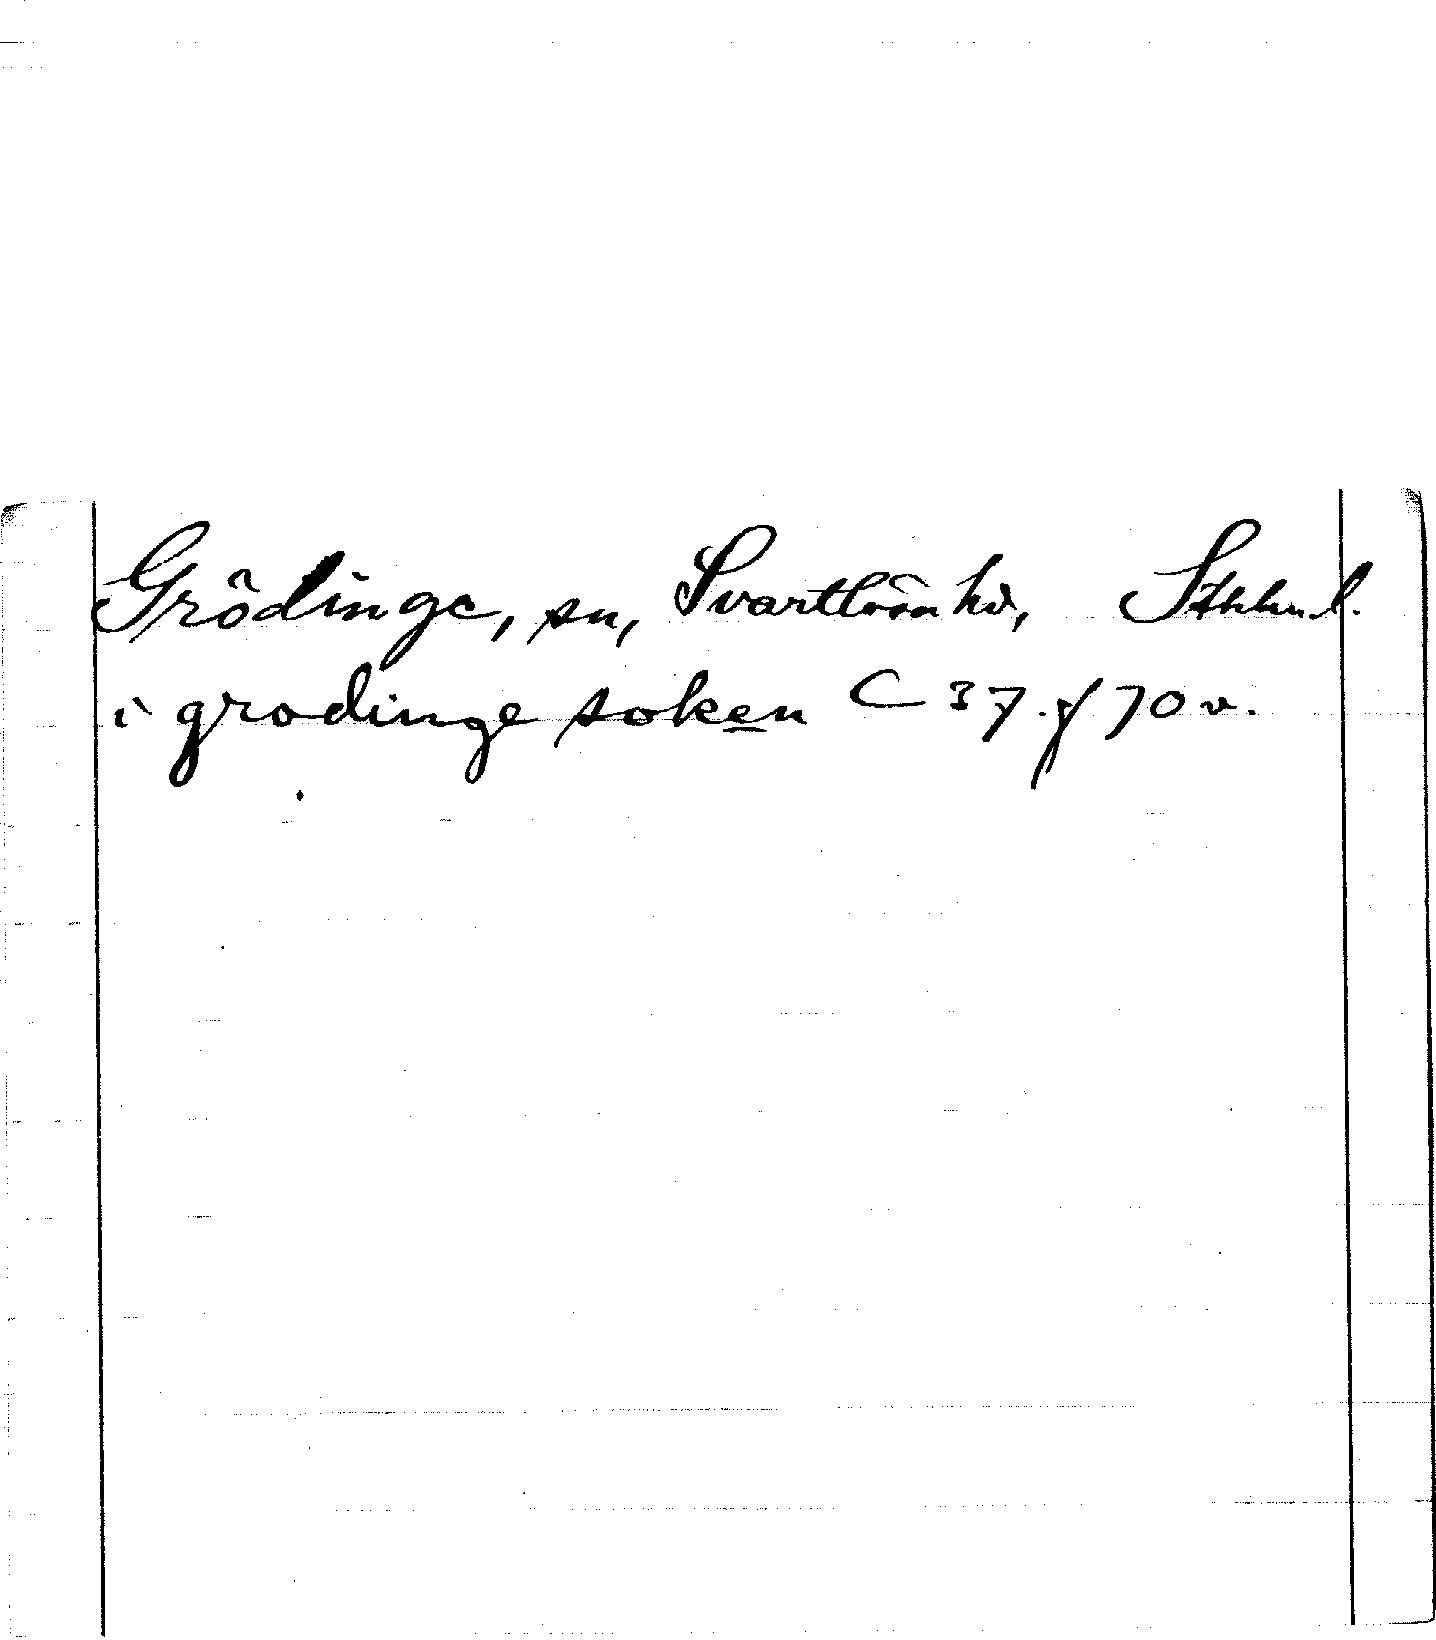 Grödinge, sn, Svartlösa hd, Sthlms l.
i grodinge soken C 37. f 70 v.